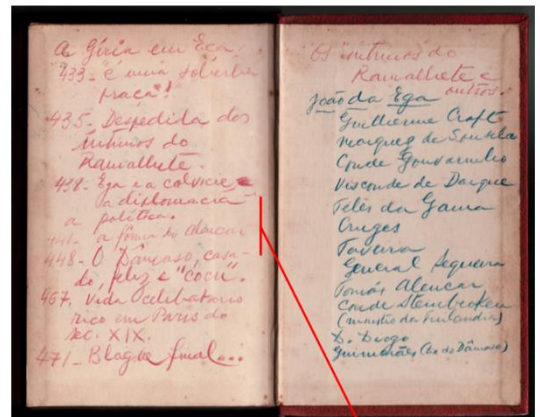 A Gíria em Eça.
433 - "é uma soberba
praça"!
435. Despedida dos
íntimos do
Ramalhete.
438 - Ega e a calvície, e
a diplomacia
a política.
a fama do Alencar
448 - O Dâmaso, casa-
do, feliz e "cocu".
467. Vida celibatário
rico em Paris do
séc. XIX.
471 - Blague final...
Os íntimos do
Ramalhete e
outros.
João da Ega
Guilherme Craft
Marquez de Souzella
Conde Gouvarinho
Visconde de Darque
Teles da Gama
Cruges
Taveira
General Sequeira
Tomás Alencar
Conde Steinbroken
(ministro da Finlandia)
D. Diogo
Guimarães (tio do Dâmaso)